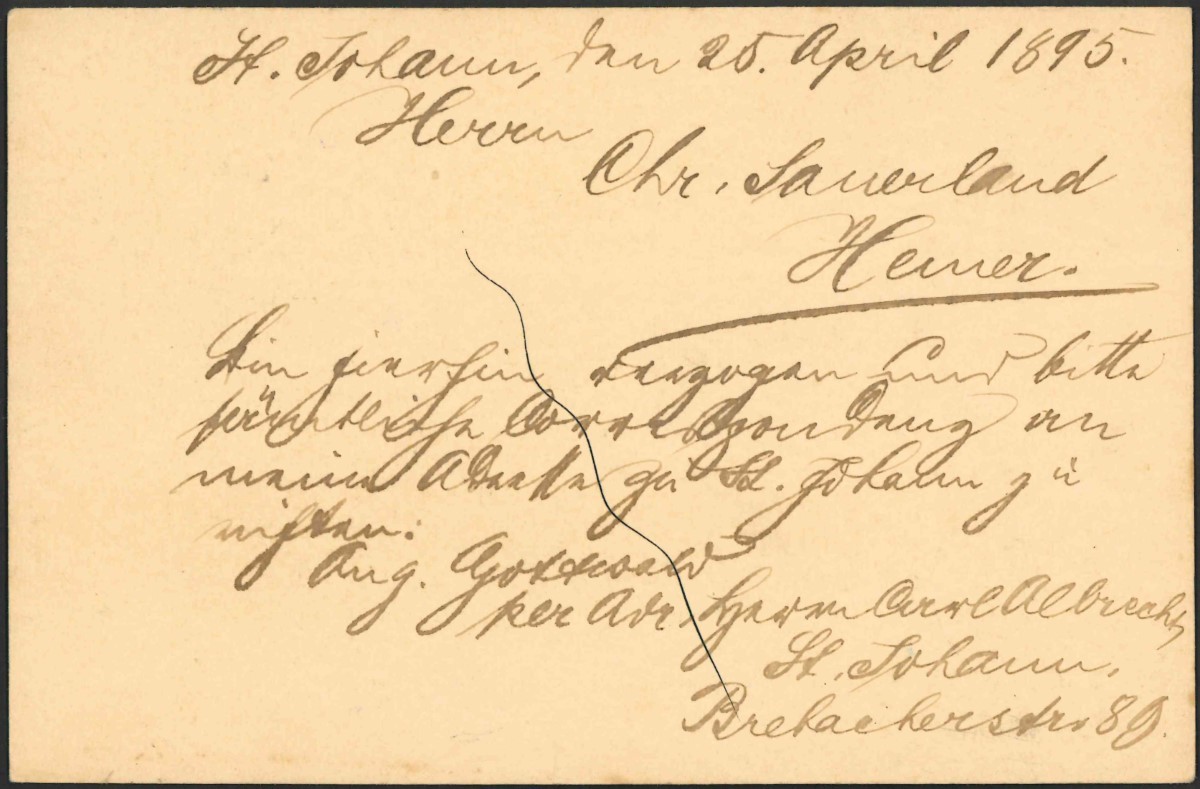 St. Johann, den 25. April 1895.
Herrn
Chr. Sauerland
Hemer.
Bin hierhin verzogen und bitte
sämtliche Correspondenz an
meine Adresse zu St. Johann zu
richten.
Aug. Gottwald
per Adr. Herrn Carl Albrecht,
St. Johann.
Brebacherstr. 89.